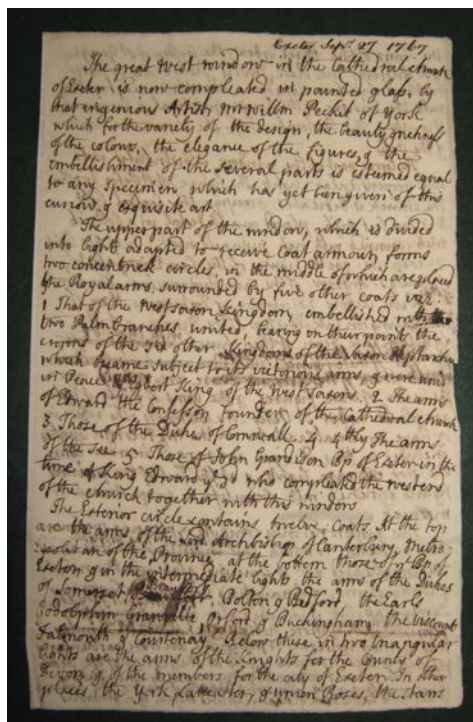 Exeter Sepr. 27 1767
The great West window in the Cathedral church
of Exeter is now compleated in painted glass, by
that ingenious Artist Mr Willm Peckit of York
which for the variety of the design, the beauty & richness
of the colours, the elegance of the figures, & the
embellishment of the several parts is esteemed equal
to any specimen which has yet been given of this
curious & exquisite art
The upper part of the window, which is divided
into lights adapted to receive Coat armour, forms
two concentrick circles, in the middle of which are placed
the Royal arms, surrounded by five other coats viz.
1 That of the West saxon Kingdom, embellished with
two Palm branches united, bearing on their points the
crowns of the six other Kingdoms of the Saxon Heptarchy
which became subject to its victorious arms, & were
in Egbert King of the West Saxons. 2 The arms
of Edward the Confessor founder of the Cathedral church
3 Those of the Duke of Cornwall. 4 The arms
of the See 5 Those of John Grandison Bp of Exeter in the
time of King Edward ye 3d who compleated the west end
of the church together with this window
The Exterior circle contains twelve Coats. At the top
are the arms of the Lord Archbishop of Canterbury, Metro;
politan of the Province, at the bottom those of ye Bp of
Exeton & in the intermediate lights the arms of the Dukes
of Somerset Bolton & Bedford the Earls
Orford & Buckingham, the Viscounts
Falmouth & Courtenay. Below these in two triangular
lights are the arms of the Knights for the County of
Devon, & of the members for the city of Exeter. In other
places the York, Lancaster, & union Roses, the stars